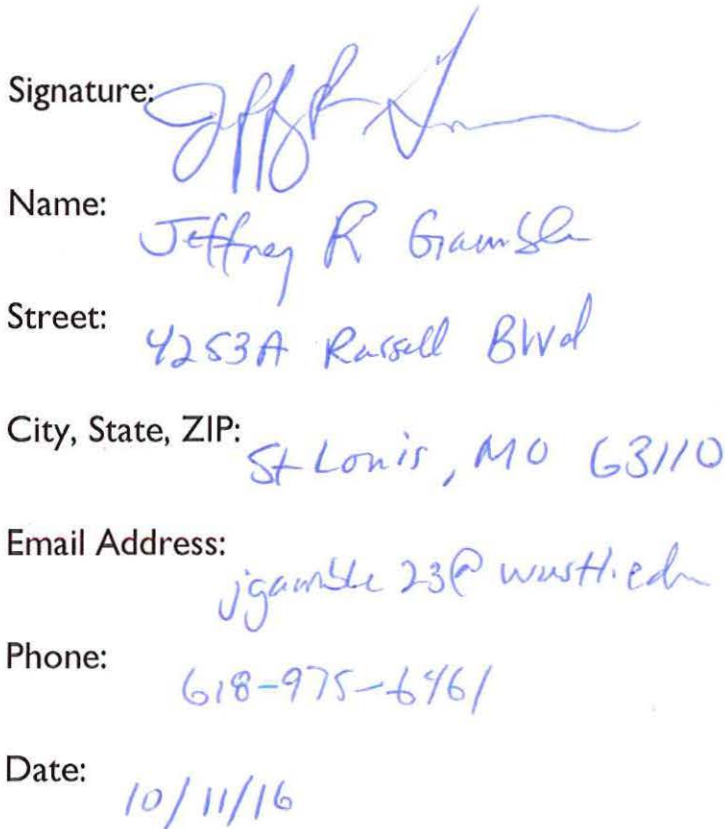 Signature:
Name: Jeffrey R Gamble
Street: 4253A Russell Blvd
City, State, ZIP: St Louis, MO 63110
Email Address: jgamble23@wustl.edu
Phone: 618-975-6461
Date: 10/11/16